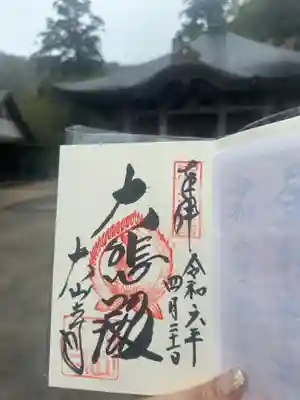 奉拝
令和六年
四月
大悲殿
大山寺